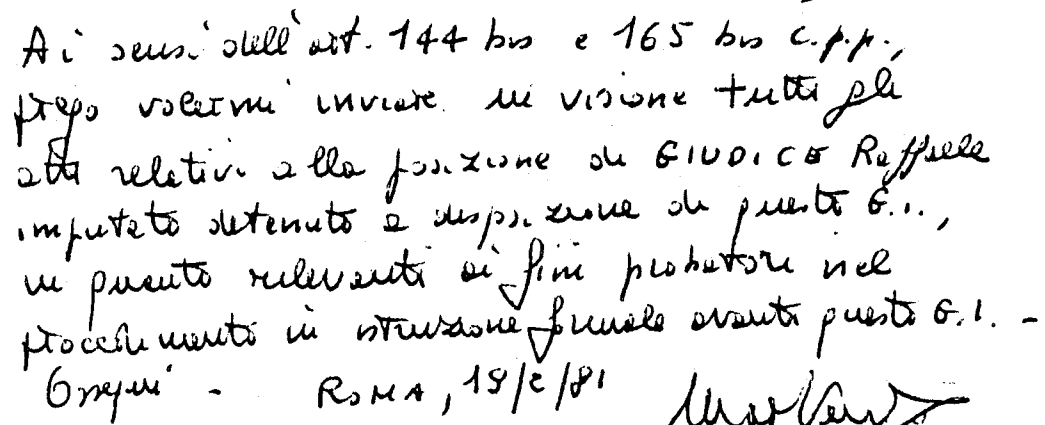 Ai sensi dell'art. 144 bis e 165 bis c.p.p.,
prego volermi inviare in visione tutti gli
atti relativi alla posizione di GIUDICE Raffaele
imputato detenuto a disposizione di questo G.I.,
in quanto rilevanti ai fini probatori nel
procedimento in istruzione formale avanti questo G.I. -
Ossequi - ROMA,